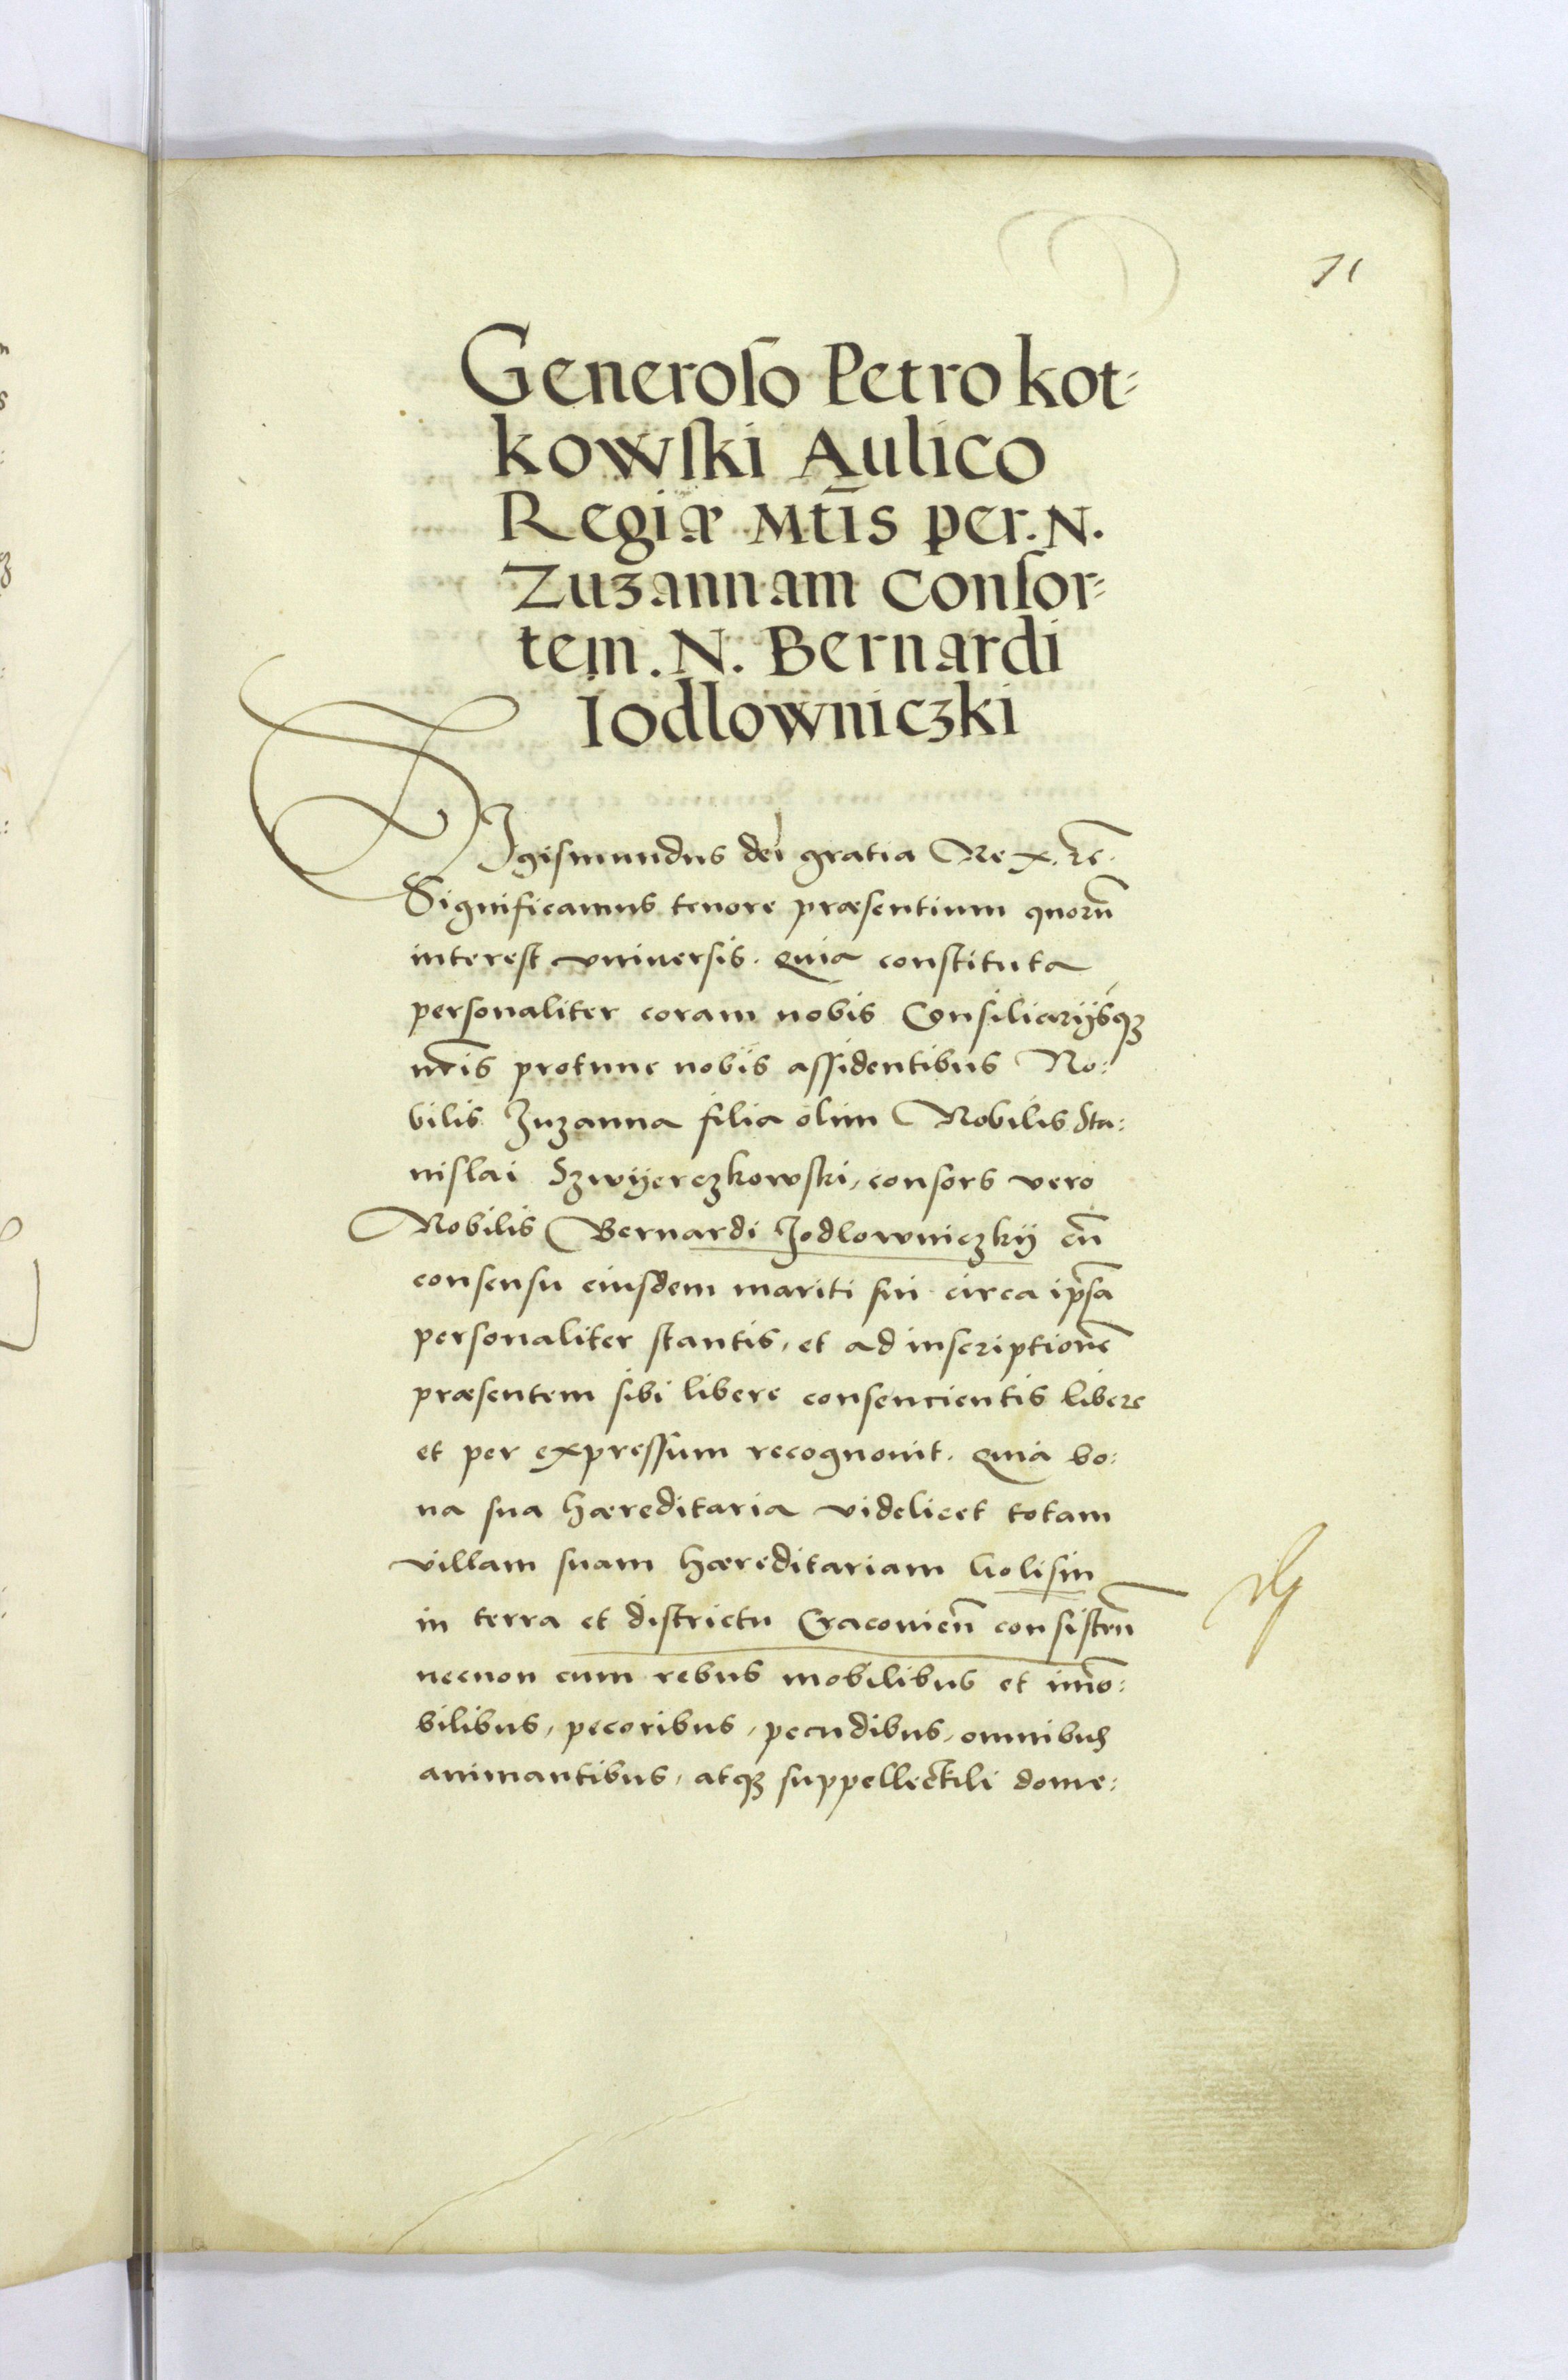 71
Generoso Petro kot=
kowski Aulico
Regiæ Mt̄is per. N.
Zuzannam consor=
tem. N. Bernardi
Iodlowniczki
SIgismundus dei gratia Rex. ꝛc̄.
Significamus tenore præsentium quorū
interest vniuersis. Quia constituta
personaliter coram nobis Consiliarijsqꝫ
nr̄is protunc nobis assidentibus No:
bilis Zuzanna filia olim Nobilis Sta:
nislai Szwyerczkowski, consors vero
Nobilis Bernardi Jodlowniczkij cū
consensu eiusdem mariti sui circa ip̄sā
personaliter stantis, et ad inscriptionē
præsentem sibi libere consencientis libere
et per expressum recognouit. Quia bo:
na sua hæreditaria videlicet totam
villam suam hæreditariam Golisin
in terra et districtu Cracouien̄ consisten̄
necnon cum rebus mobilibus et im̄o:
bilibus, pecoribus, pecudibus, omnibus
animantibus, atqꝫ suppellectili dome: